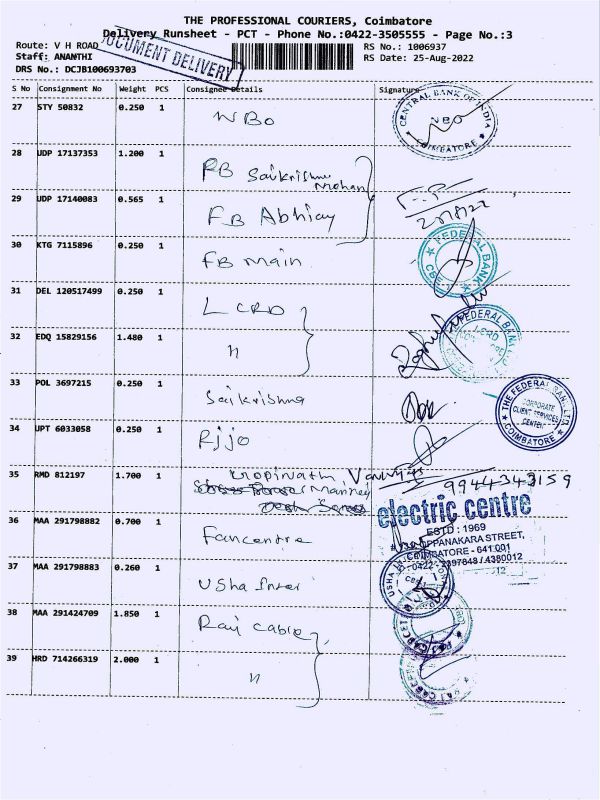 THE PROFESSIONAL COURIERS, Coimbatore
Delivery Runsheet - PCT - Phone No.:0422-3505555 - Page No.:3
Route: V H ROAD
DOCUMENT DELIVERY
RS No.: 1006937
Staff: ANANTHI
RS Date: 25-Aug-2022
DRS No.: DCJB100693703
S No Consignment No Weight PCS Consignee Details Signature
27 STY 50832 0.250 1 NBO
CENTRAL BANK OF INDIA
NBO
COIMBATORE
28 UDP 17137353 1.200 1 FB Saikrishna
Mohan
29 UDP 17140083 0.565 1 FB Abhiay
30 KTG 7115896 0.250 1 FB main
FEDERAL BANK
CBE
31 DEL 120517499 0.250 1 LCRD
FEDERAL BANK
LCRD
32 EDQ 15829156 1.480 1 "
33 POL 3697215 0.250 1 Saikrishna
THE FEDERAL BANK LTD
CORPORATE
CLIENT SERVICES
CENTER
COIMBATORE
34 UPT 6033058 0.250 1 Rijo
35 RMD 812197 1.700 1 Gopinath
9944343159
electric centre
ESTD : 1969
36 MAA 291798882 0.700 1 Fancentre
OPPANAKARA STREET,
COIMBATORE - 641 001
0422 - 2397848 / 4380012
37 MAA 291798883 0.260 1 Usha Inter
38 MAA 291424709 1.850 1 Raj Cable
39 HRD 714266319 2.000 1 "